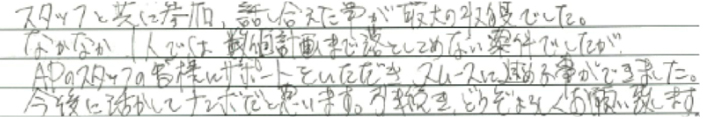 スタッフと共に参加、話し合えた事が最大の収穫でした。
なかなか1人では、数値計画まで落としこめない案件でしたが、
APのスタッフの皆様にサポートをいただき、スムースに進める事ができました。
今後に活かしてナンボだと思います。引き続き、どうぞよろしくお願い致します